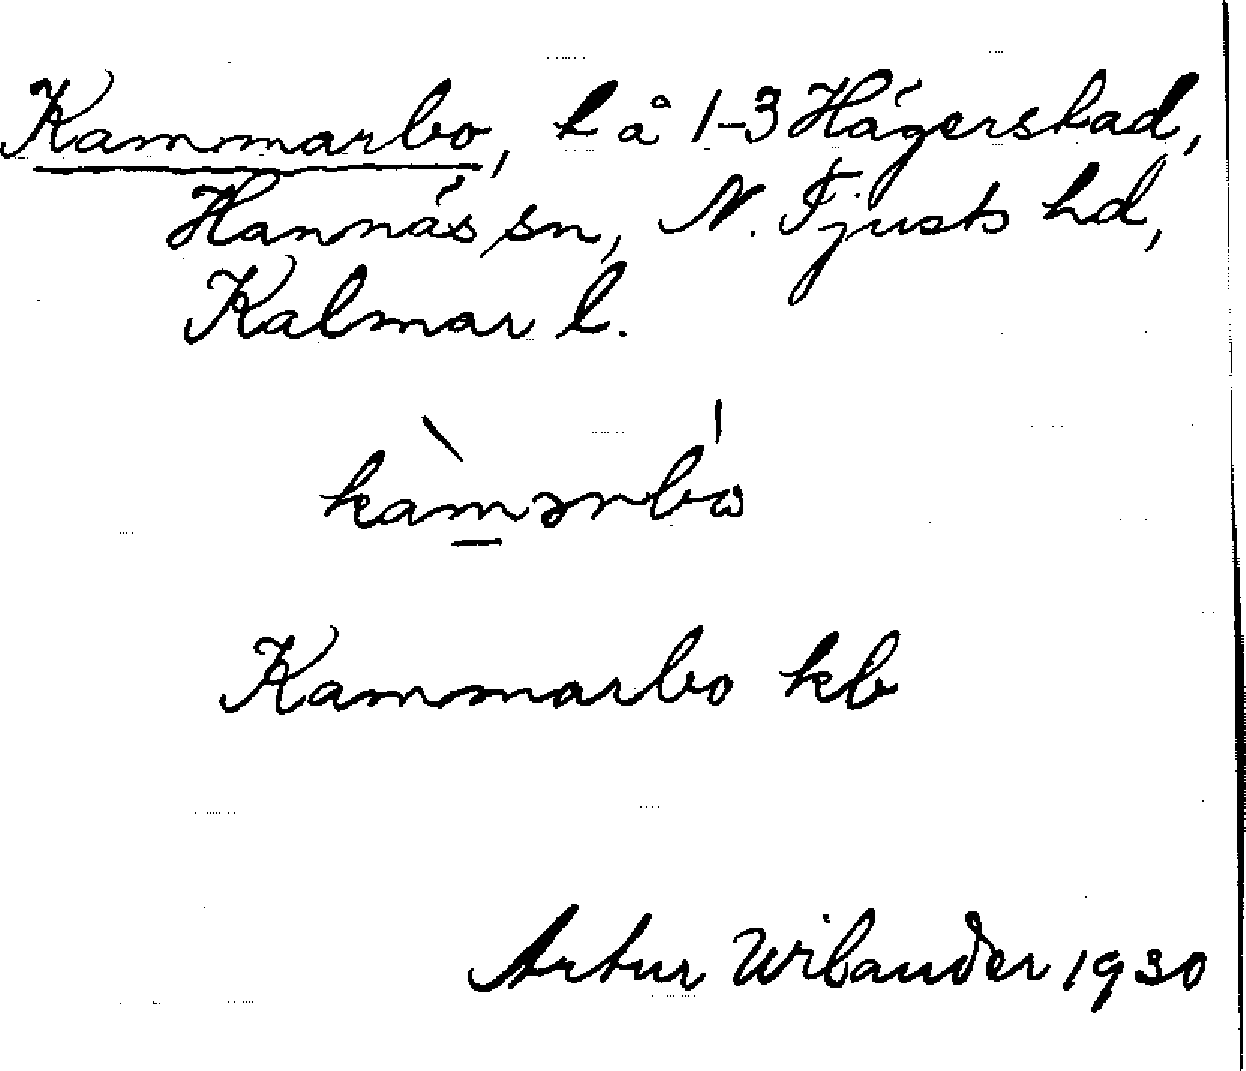 Kammarbo, l å 1-3 Hägerstad,
Hannäs sn, N. Tjusts hd,
Kalmar l.
kàmərbó
Kammarbo kb
Artur Wilander 1930